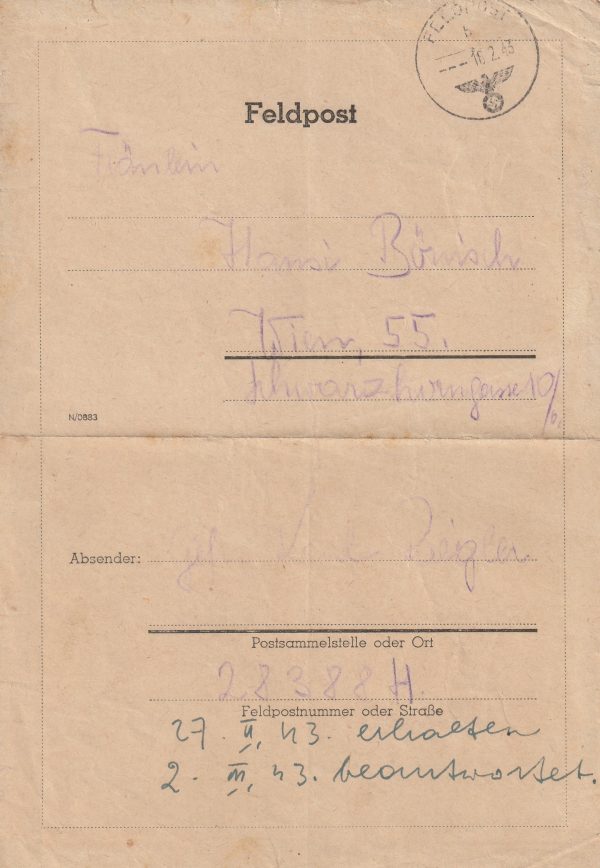 FELDPOST
b
16.2.43
Feldpost
Fräulein
Hansi Bönisch
Wien, 55.
Schwarzhorngasse 10/
N/0883
Absender:
Postsammelstelle oder Ort
28388 H.
Feldpostnummer oder Straße
27. II. 43. erhalten
2. III. 43. beantwortet.